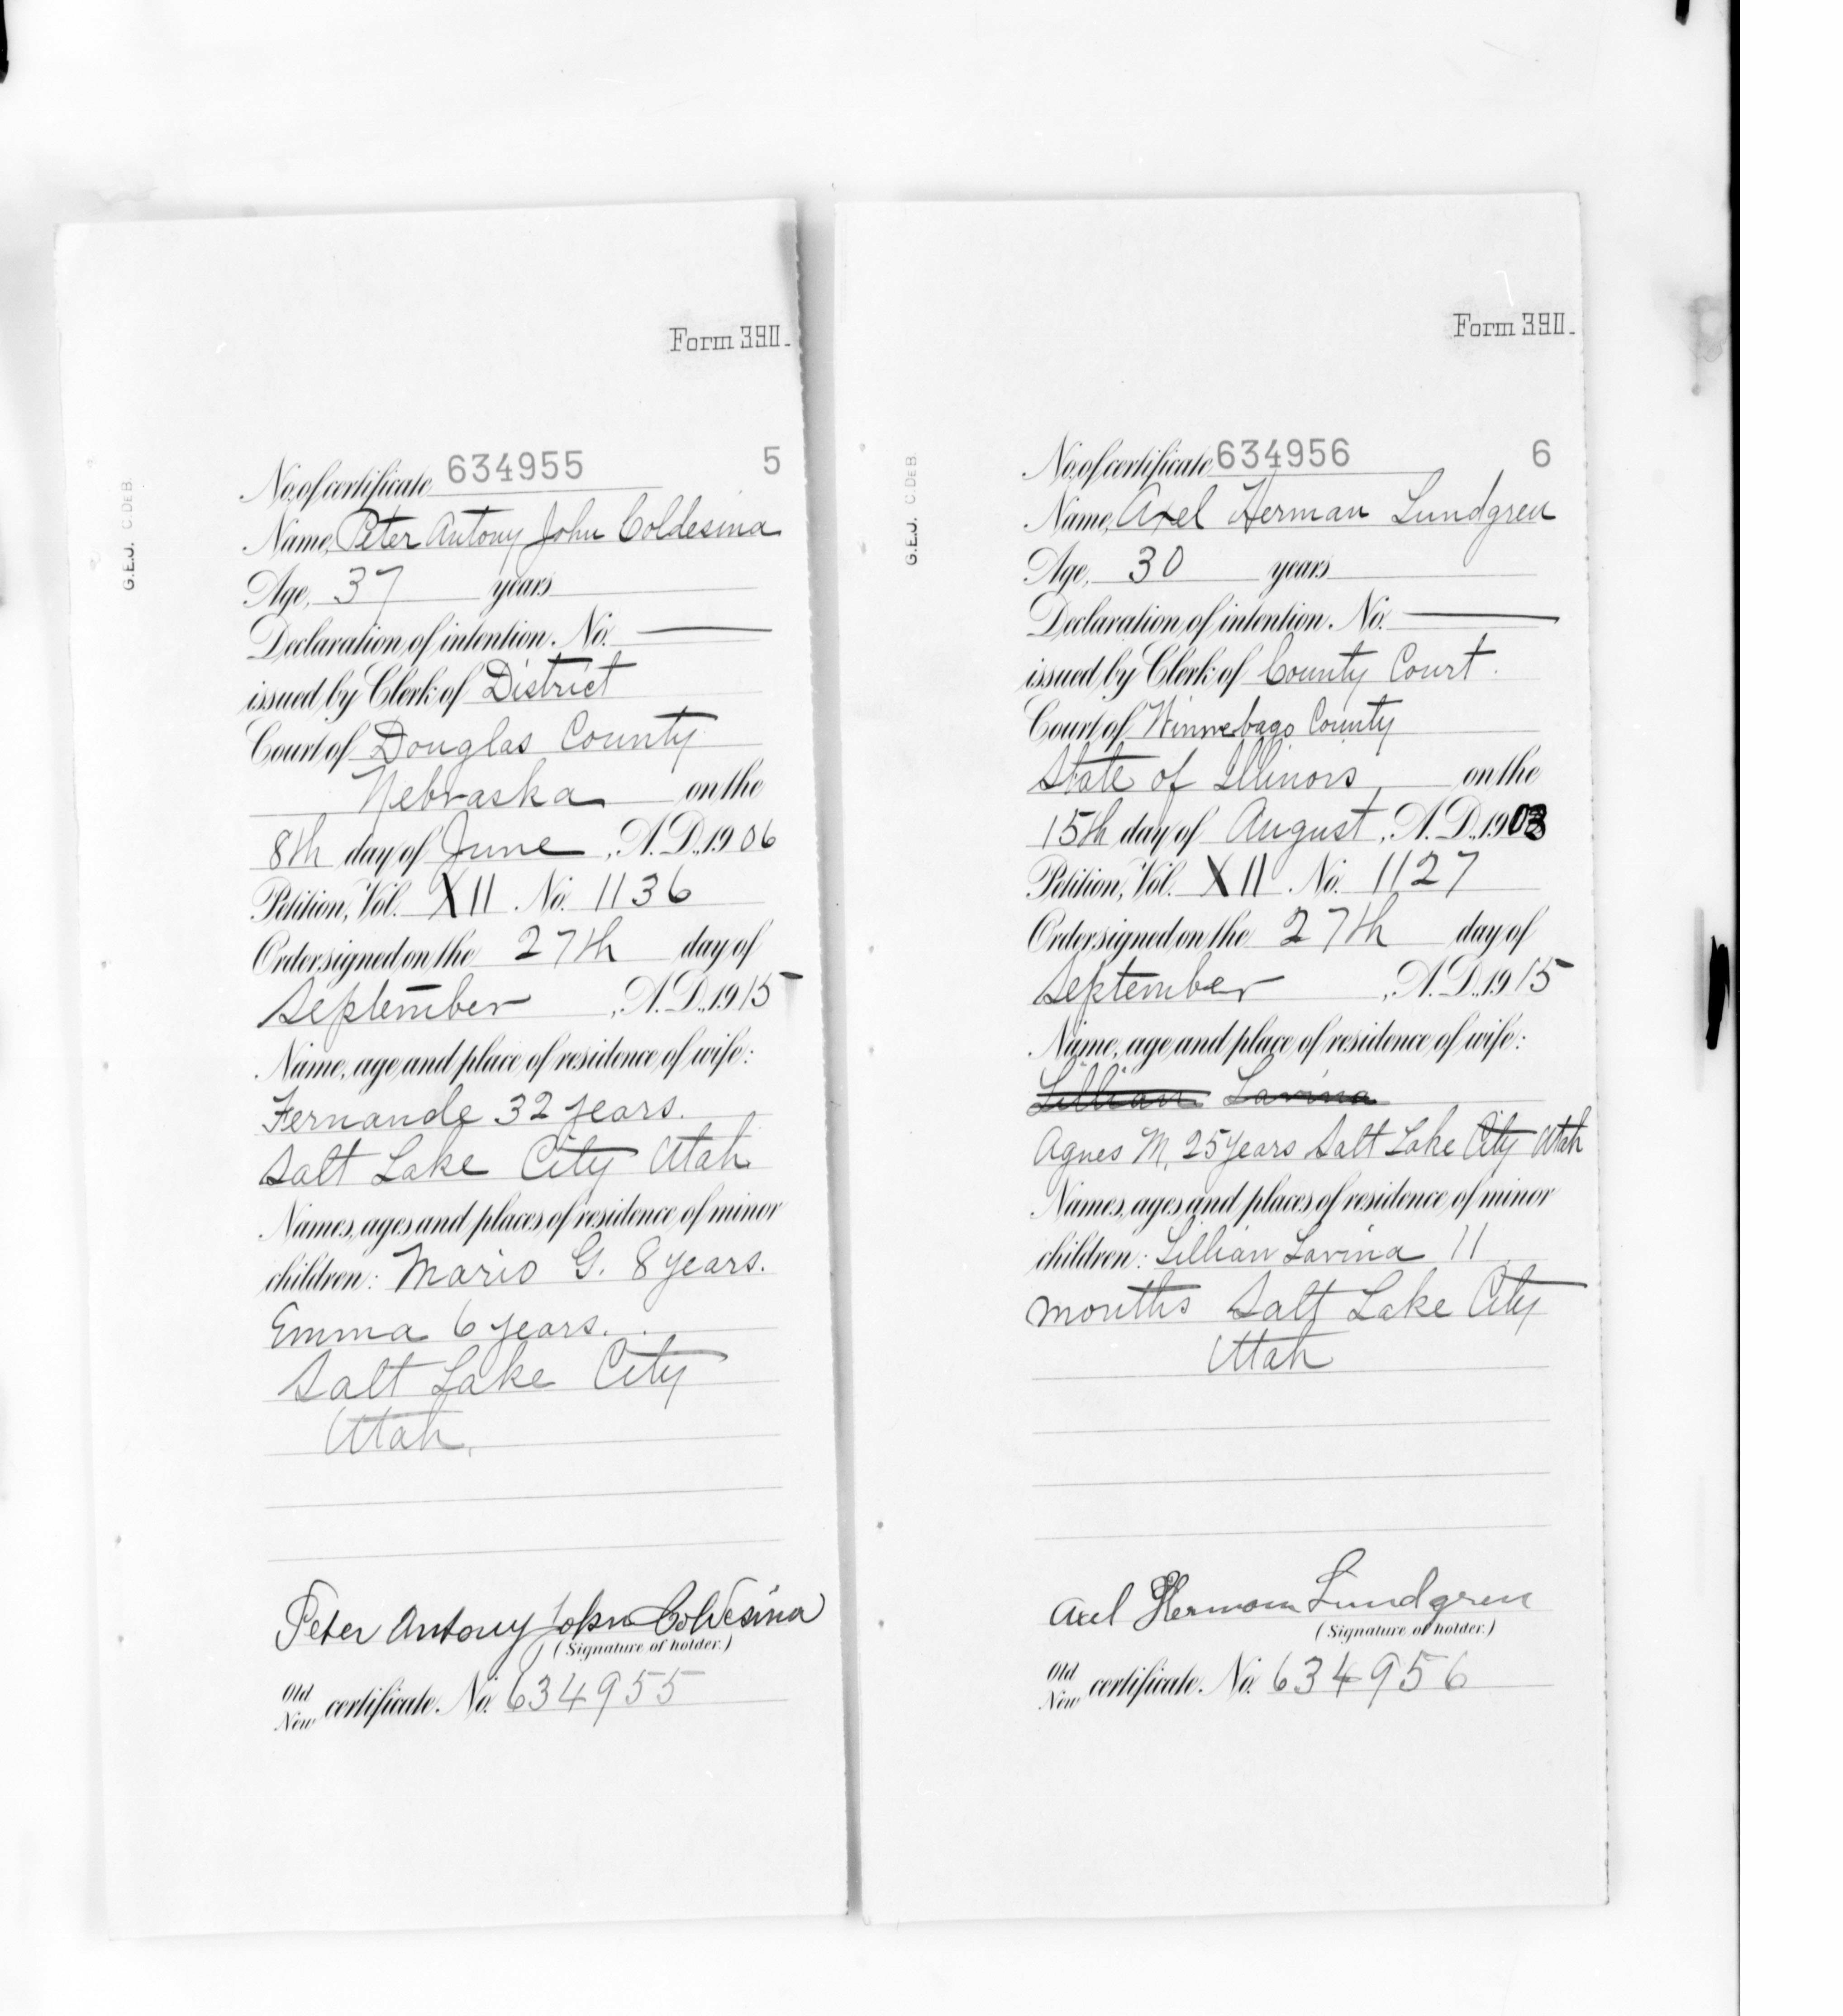 Form 390.
G.E.J. C.DEB.
No. of certificate 634955 5
Name, Peter Antony John Coldesina
Age, 37 years
Declaration of intention. No. ———
issued by Clerk of District
Court of Douglas County
Nebraska on the
8th day of June, A.D., 1906
Petition, Vol. XII No. 1136
Order signed on the 27th day of
September, A.D., 1915
Name, age and place of residence of wife:
Fernande 32 years.
Salt Lake City Utah
Names, ages and places of residence of minor
children: Mario G. 8 years.
Emma 6 years.
Salt Lake City
Utah.
Peter Antony John Coldesina
(Signature of holder.)
Old
New certificate. No. 634955
Form 390.
G.E.J. C.DEB.
No. of certificate 634956 6
Name, Axel Herman Lundgren
Age, 30 years
Declaration of intention. No. ———
issued by Clerk of County Court.
Court of Winnebago County
State of Illinois on the
15th day of August, A.D., 1903
Petition, Vol. XII No. 1127
Order signed on the 27th day of
September, A.D., 1915
Name, age and place of residence of wife:
Lillian Lavina
Agnes M, 25 years Salt Lake City Utah
Names, ages and places of residence of minor
children: Lillian Lavina 11
months Salt Lake City
Utah
Axel Herman Lundgren
(Signature of holder.)
Old
New certificate. No. 634956